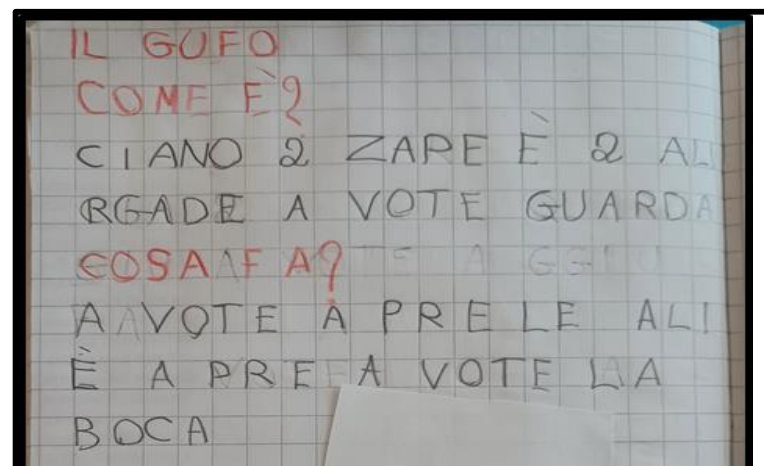 IL GUFO
COME È?
CIANO 2 ZAPE È 2 ALI
RGADE A VOTE GUARDA
COSA FA?
A VOTE A PRE LE ALI
È A PRE A VOTE LA
BOCA